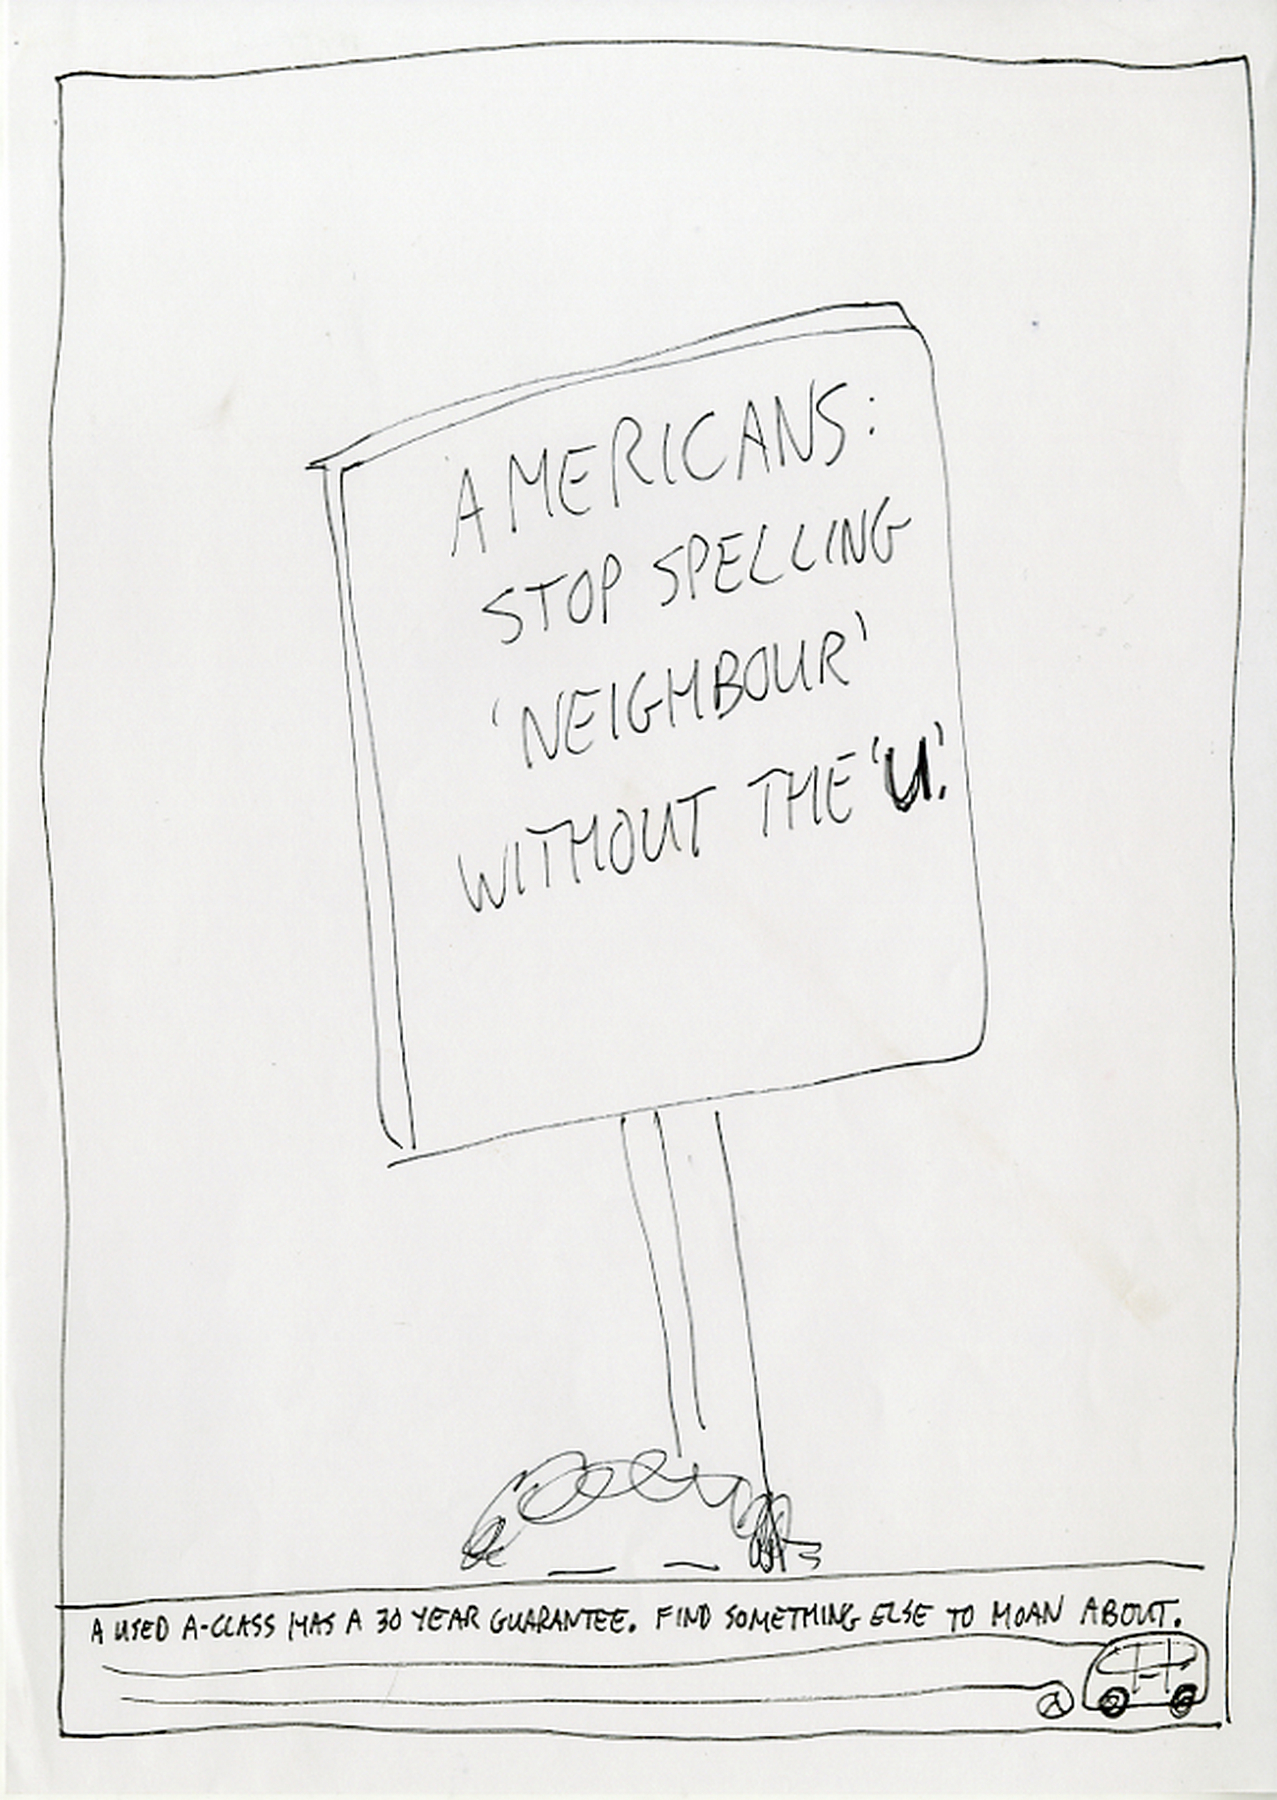 AMERICANS:
STOP SPELLING
'NEIGHBOUR'
WITHOUT THE 'U'.
A USED A-CLASS HAS A 30 YEAR GUARANTEE. FIND SOMETHING ELSE TO MOAN ABOUT.